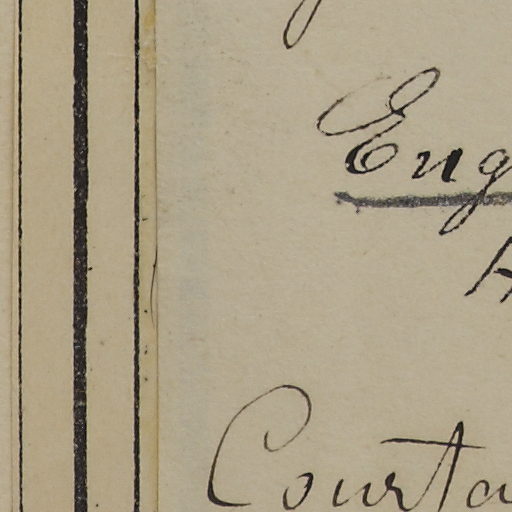 Eng
H
Courta